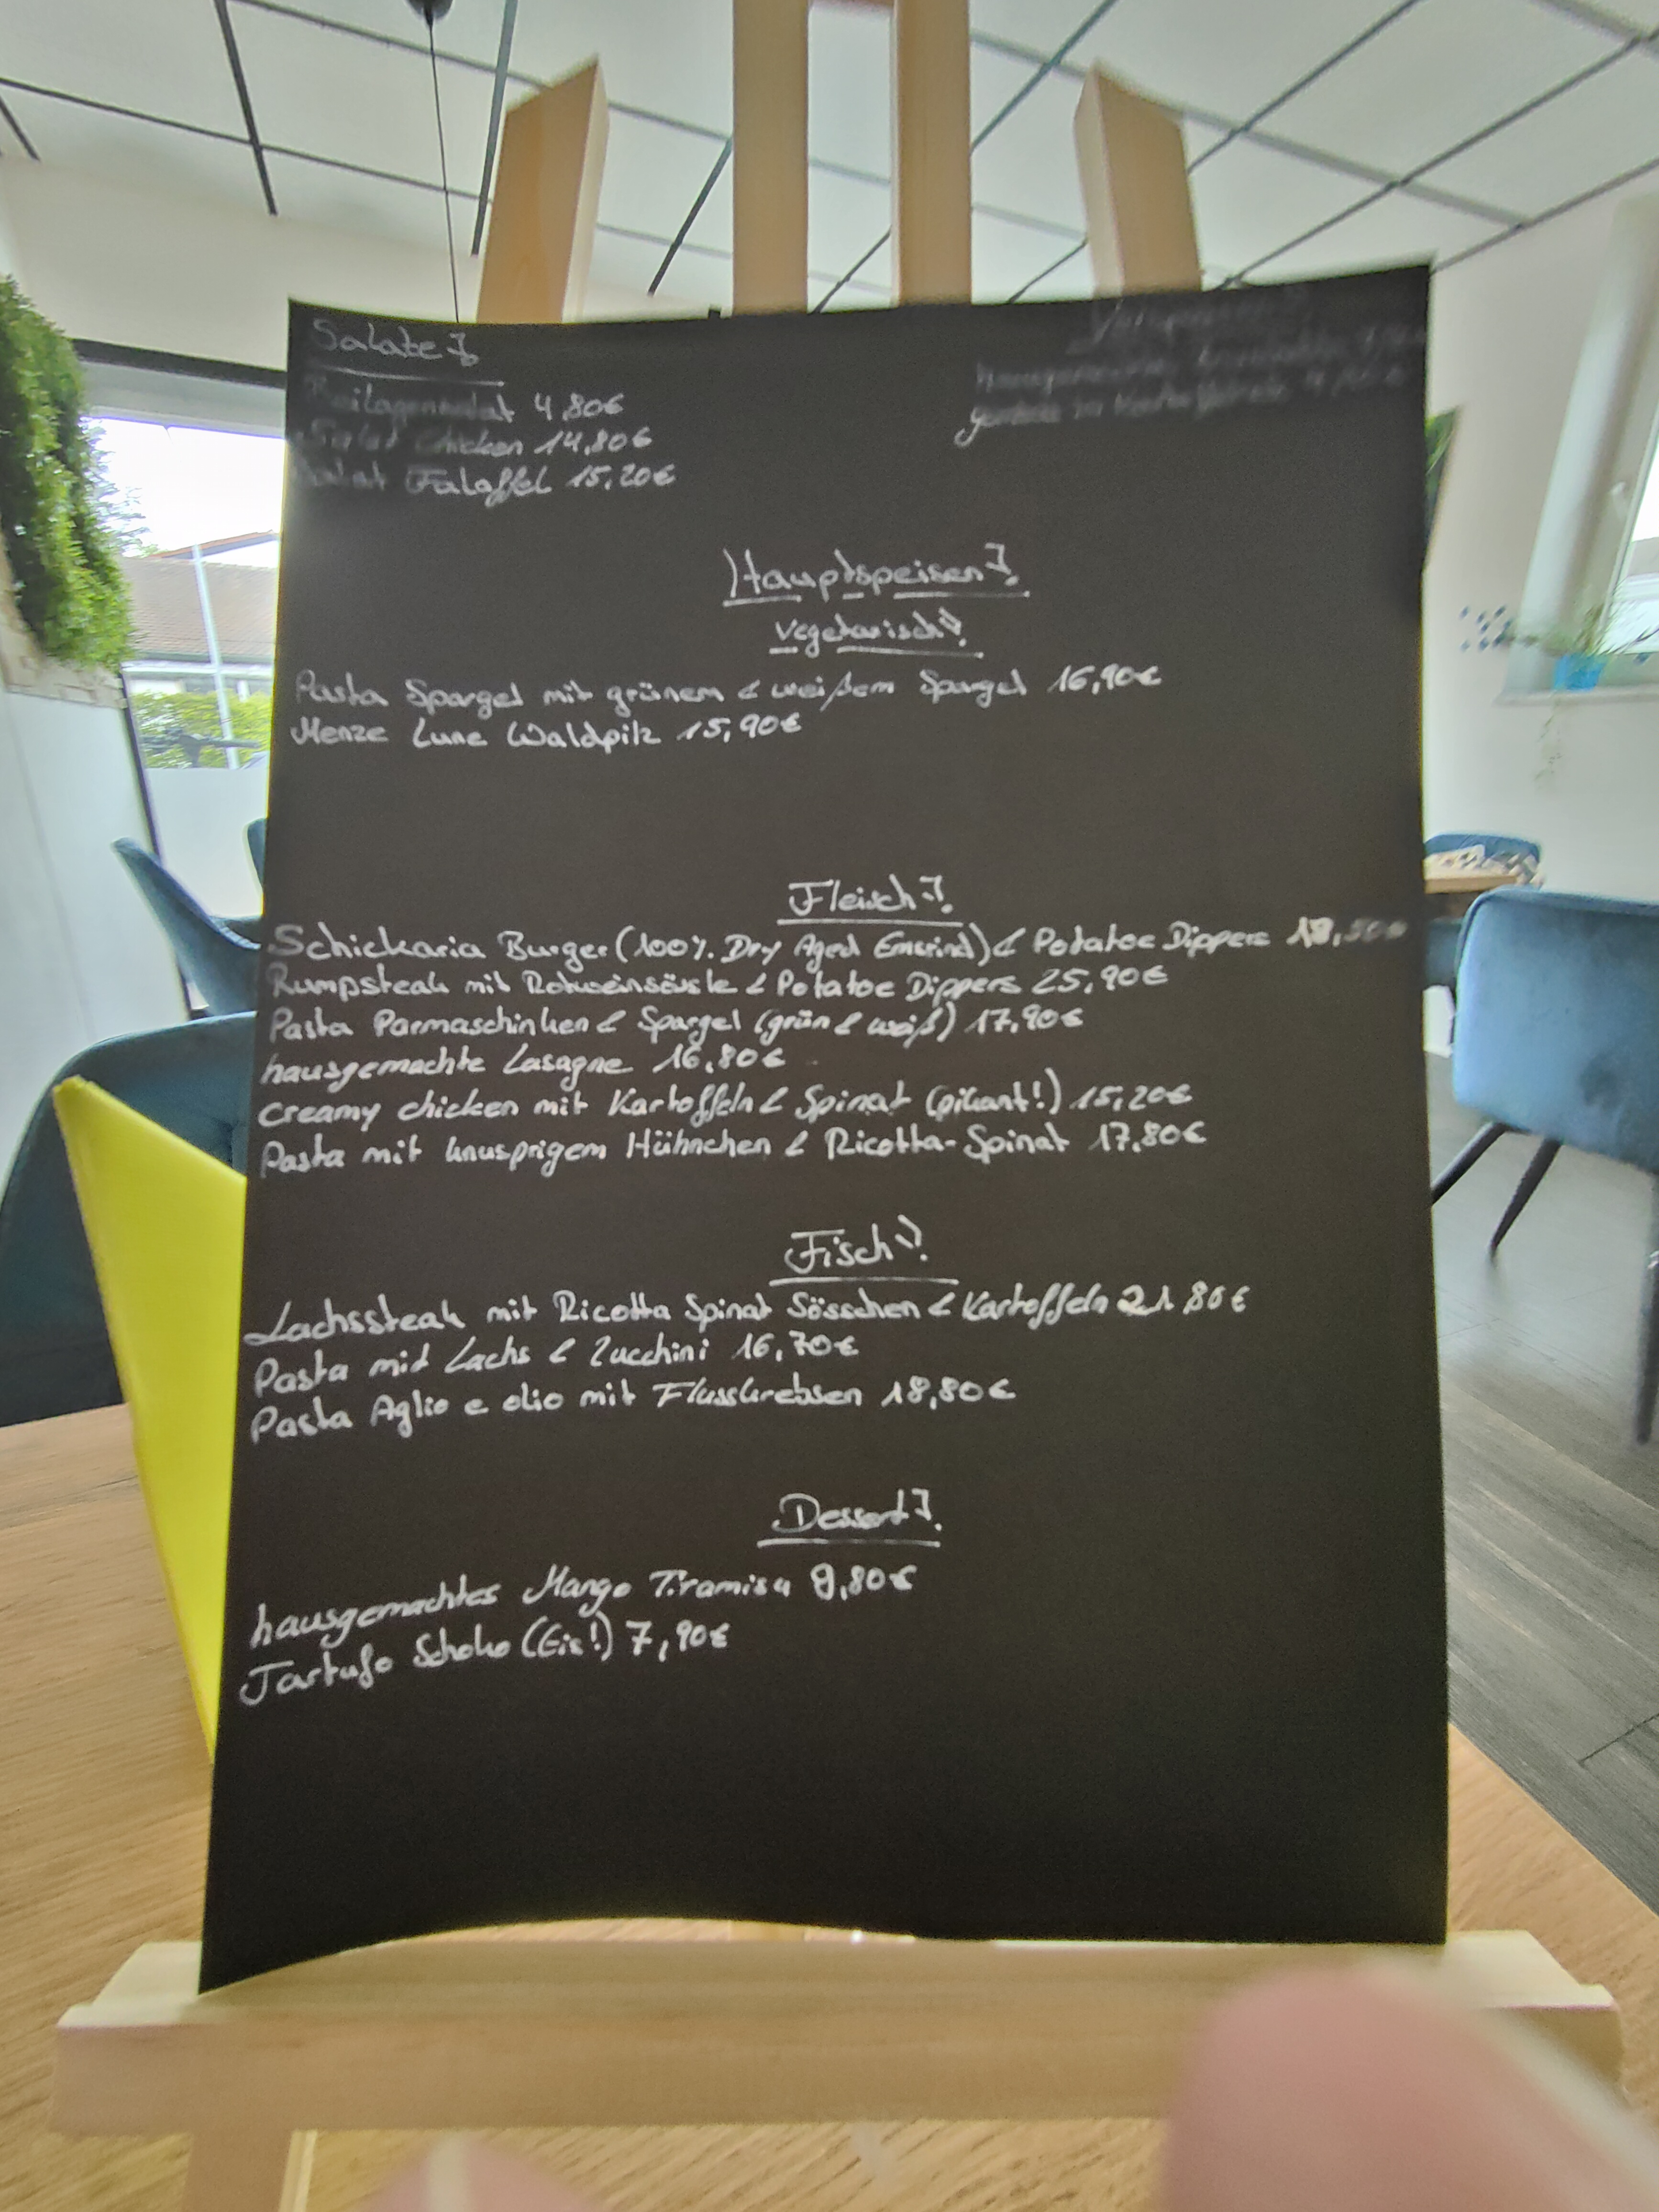 Salate
Beilagensalat 4,80€
Salat Chicken 14,80€
Salat Falaffel 15,20€
Hauptspeisen
Vegetarisch
Pasta Spargel mit grünem & weißem Spargel 16,90€
Menze Lune Waldpilz 15,90€
Fleisch
Schickaria Burger (100% Dry Aged Emsrind) & Potatoe Dippers
Rumpsteak mit Rotweinsössle & Potatoe Dippers 25,90€
Pasta Parmaschinken & Spargel (grün & weiß) 17,90€
hausgemachte Lasagne 16,80€
Creamy chicken mit Kartoffeln & Spinat (pikant!) 15,20€
Pasta mit knusprigem Hühnchen & Ricotta-Spinat 17,80€
Fisch
Lachssteak mit Ricotta Spinat Sösschen & Kartoffeln 21,80€
Pasta mit Lachs & Zucchini 16,70€
Pasta Aglio e olio mit Flusskrebsen 18,80€
Dessert
hausgemachtes Mango Tiramisu 9,80€
Tartufo Schoko (Eis!) 7,90€